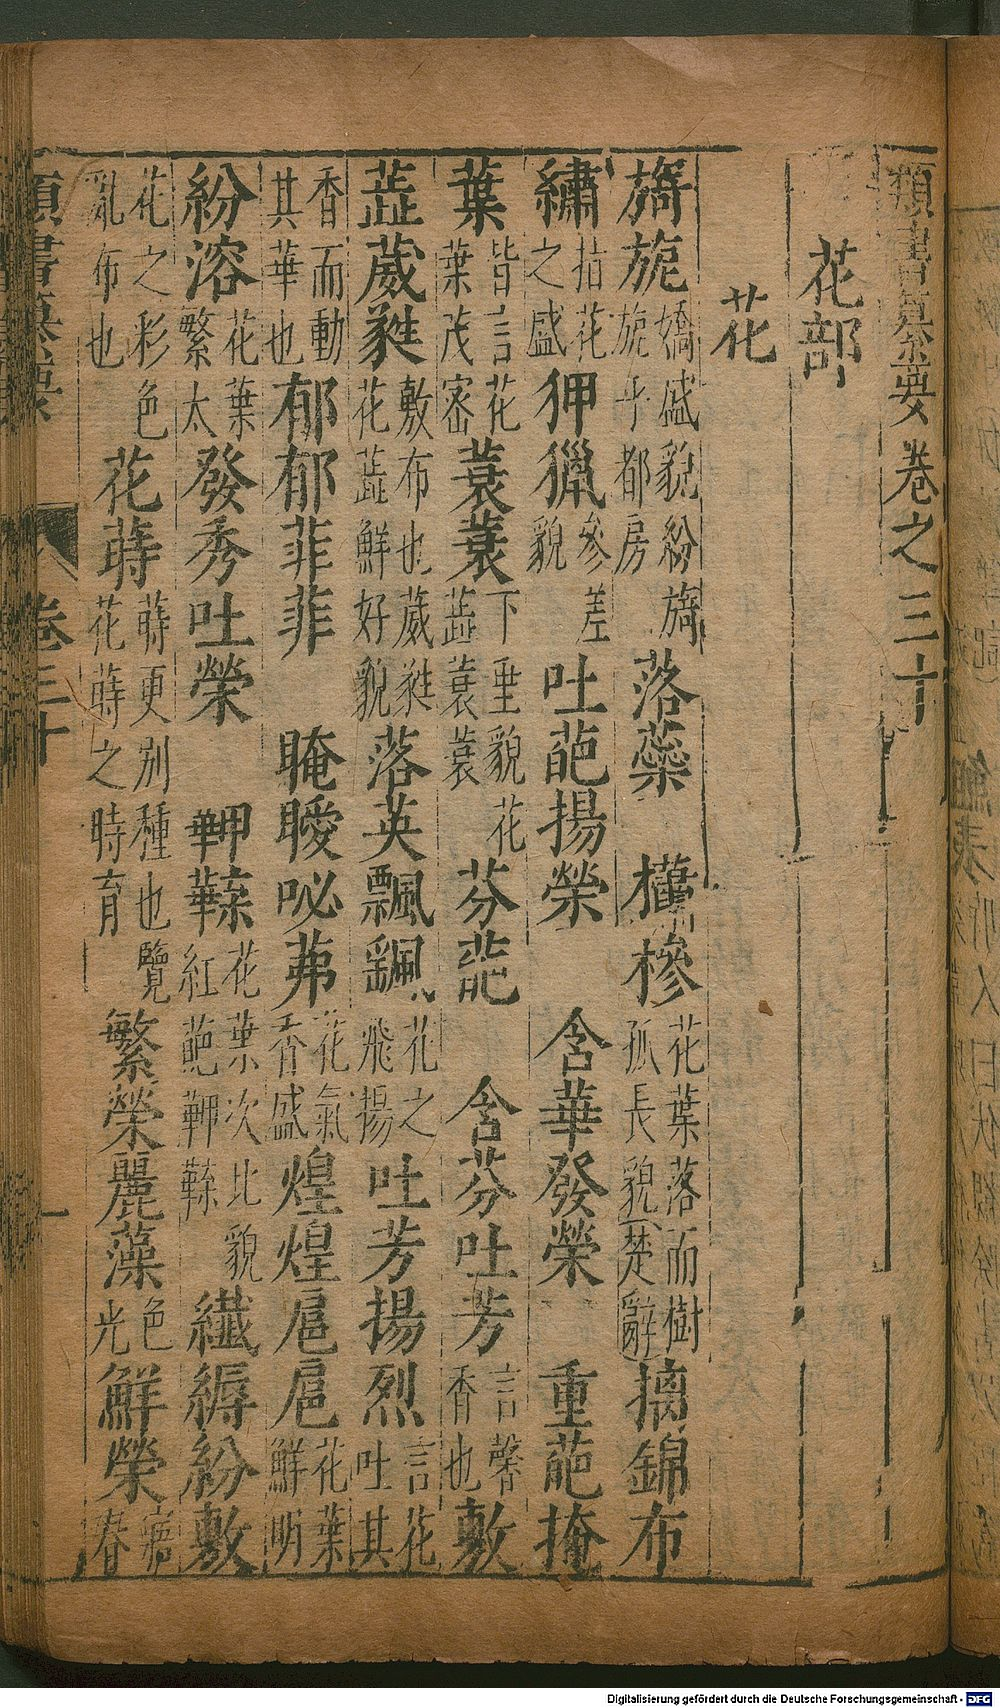 類書纂要卷之三十
花部
花
旖旎嬌盛貌紛旖旎乎都房落蘂櫹槮花葉落而樹孤長貌楚辭摛錦布
繡指花之盛狎獵參差貌吐葩揚榮含華發榮重葩掩
葉皆言花葉茂密蓑蓑下垂貌花蕋蓑蓑芬葩含芬吐芳言馨香也敷
蕋葳蕤敷布也葳蕤花蕋鮮好貌落英飄颻花之飛揚吐芳揚烈言花吐其
香而動其華也郁郁菲菲晻曖咇茀花氣香盛煌煌扈扈花葉鮮明
紛溶花葉繁太發秀吐榮花葉次比貌紅葩纖縟紛敷
花之彩色亂布也花蒔蒔更別種也覽花蒔之時育繁榮麗藻色光鮮榮春
類書纂要
卷三十
一
Digitalisierung gefördert durch die Deutsche Forschungsgemeinschaft - DFG